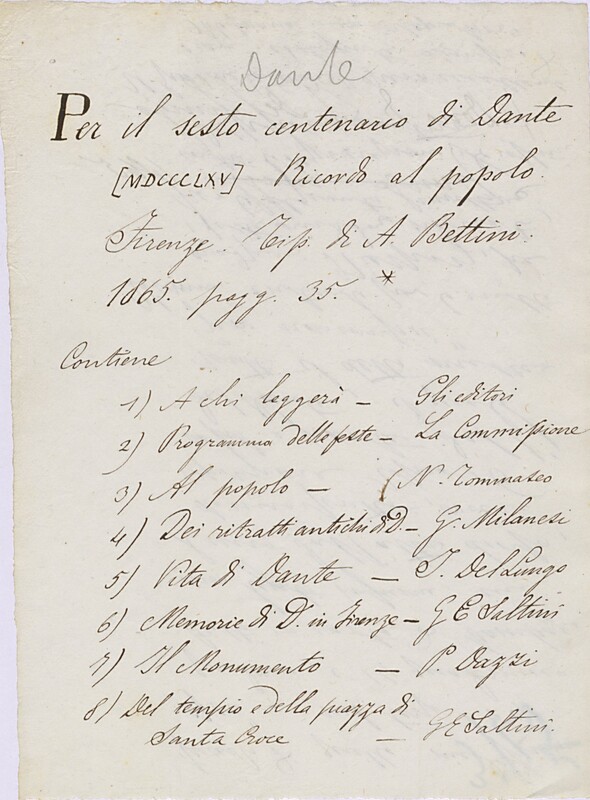 Dante
Per il sesto centenario di Dante
[MDCCCLXV] Ricordo al popolo.
Firenze. Tip. di A. Bettini.
1865. pagg. 35. *
Contiene
1) A chi leggerà — Gli editori
2) Programma delle feste — La Commissione
3) Al popolo — (N. Tommaseo
4) Dei ritratti antichi di D. — G. Milanesi
5) Vita di Dante — I. Del Lungo
6) Memorie di D. in Firenze — G E Saltini
7) Il Monumento — P. Dazzi
8) Del tempio e della piazza di
Santa Croce — G E Saltini.